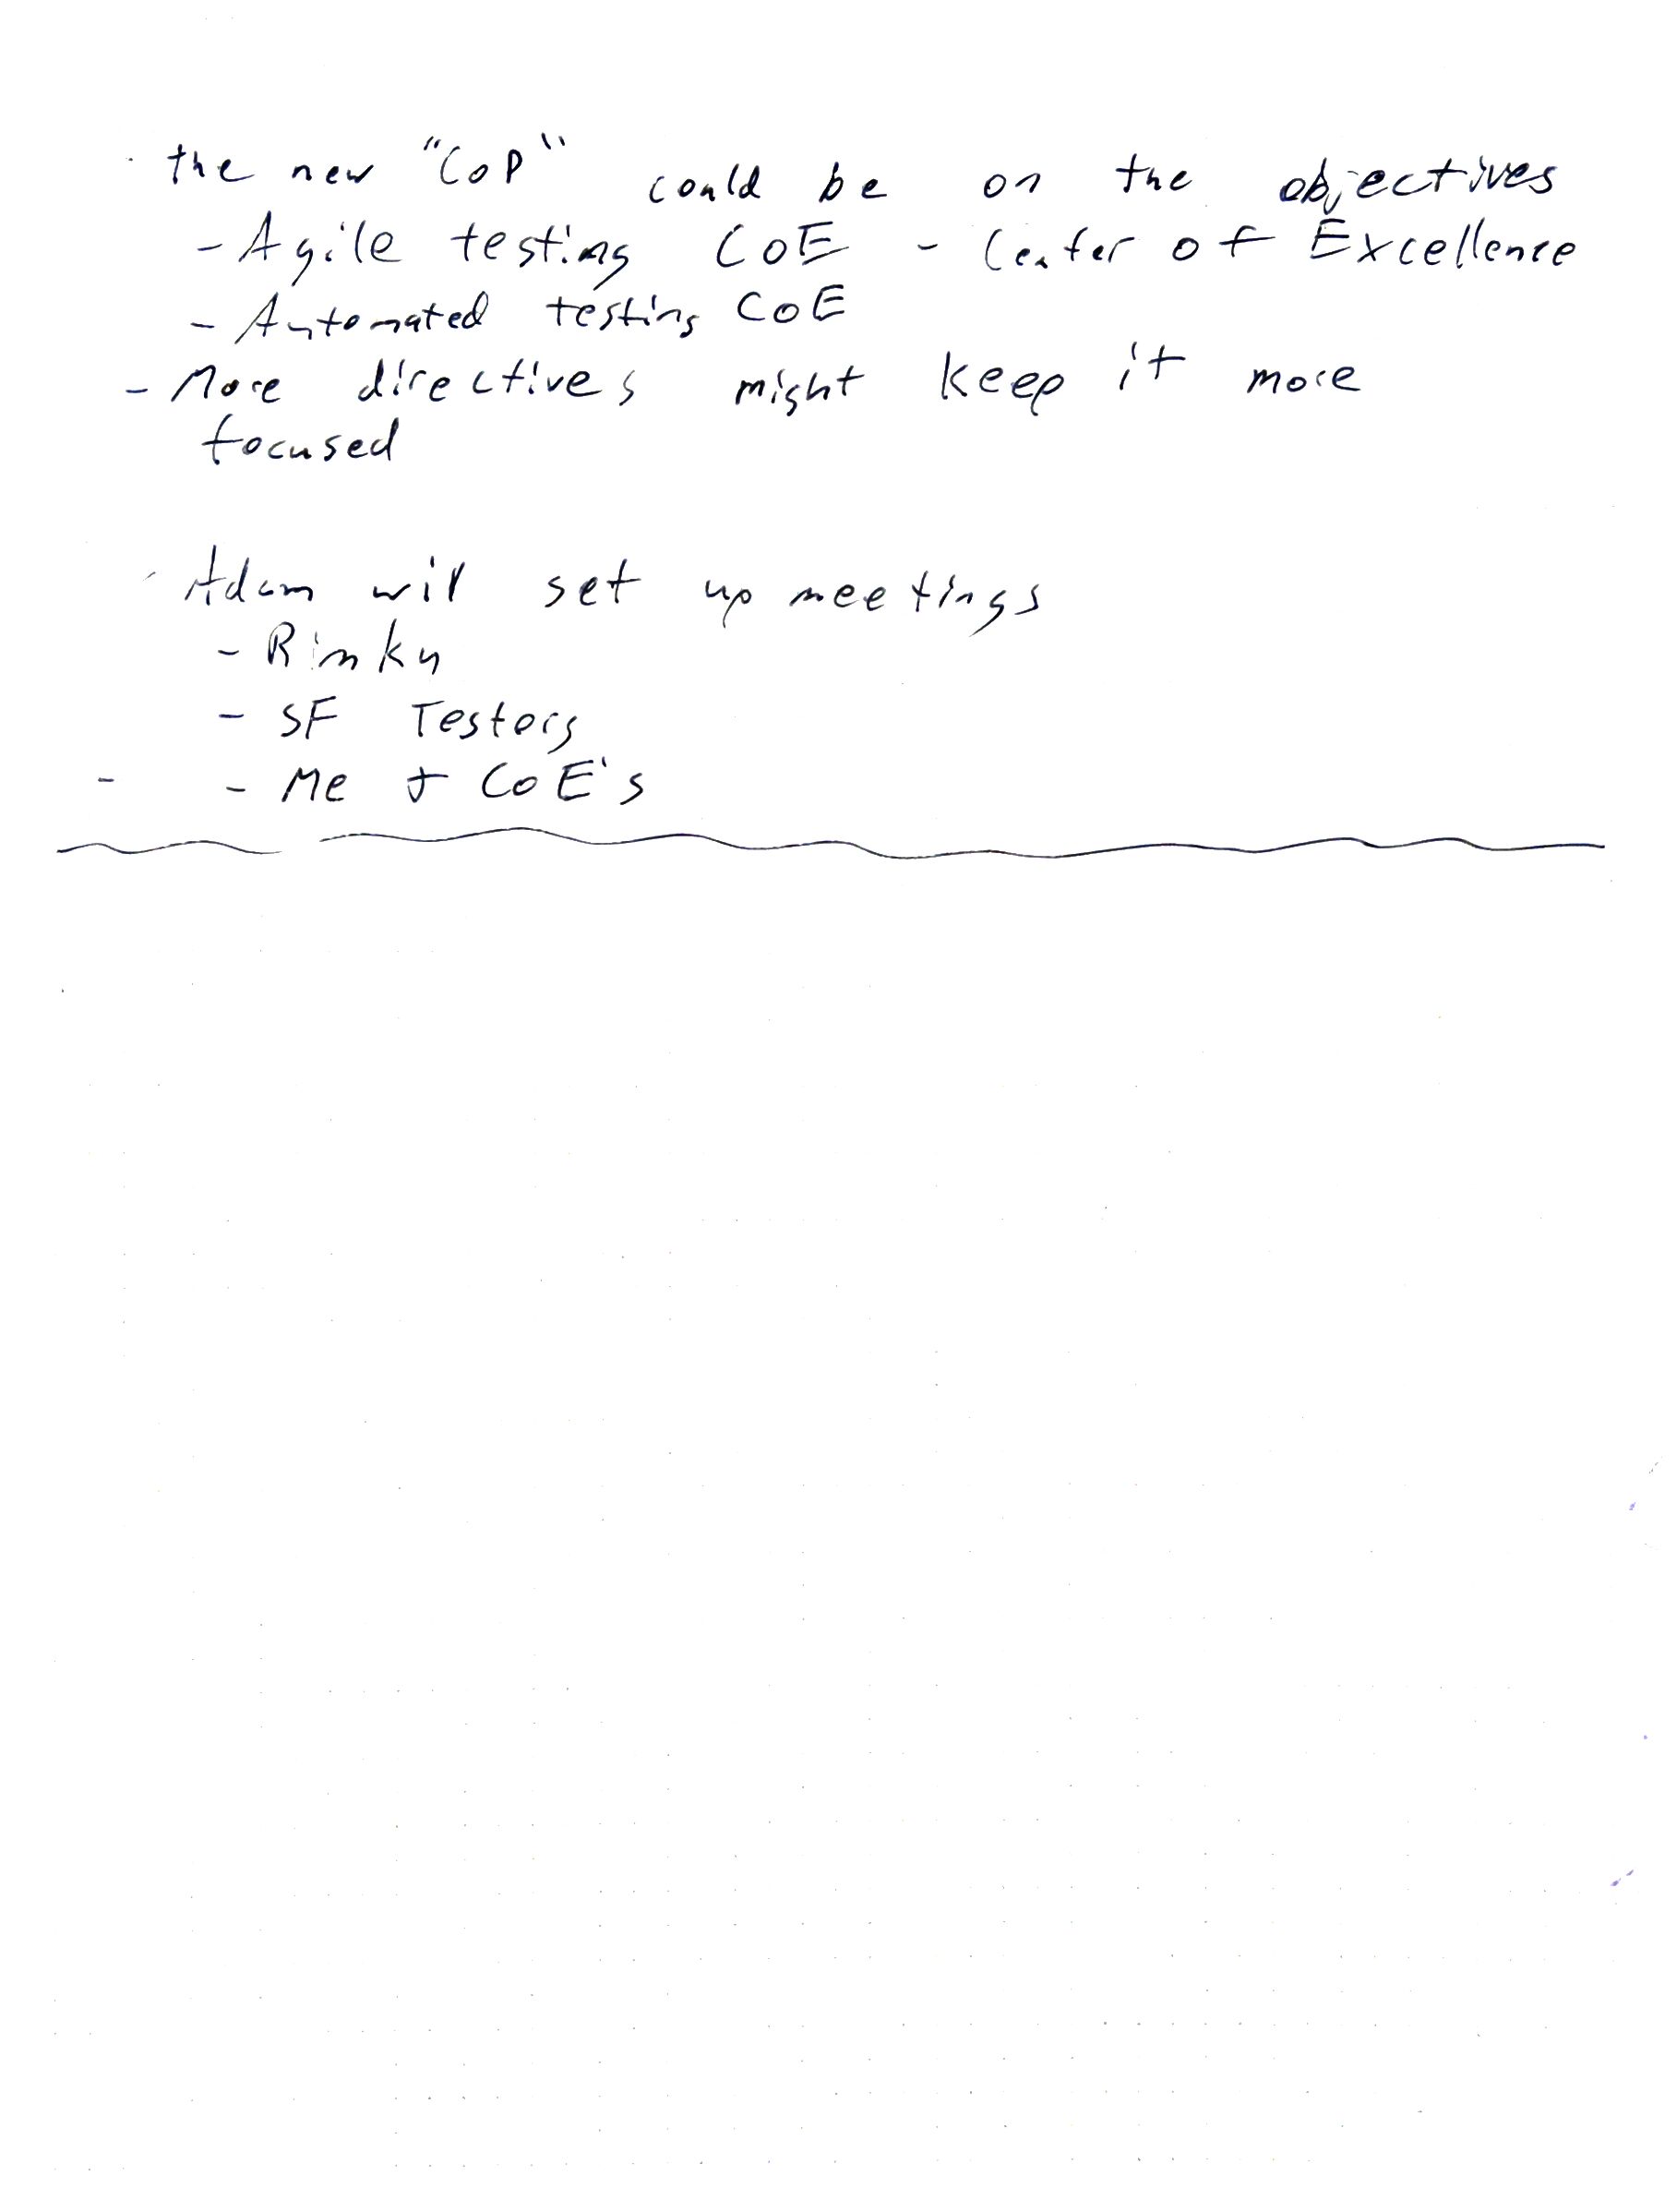 · the new "CoP" could be on the objectives
- Agile testing CoE - Center of Excellence
- Automated testing CoE
- More directives might keep it more
focused
· Adam will set up meetings
- Rinku
- SF Testers
- - Me + CoE's